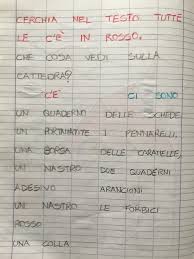 CERCHIA NEL TESTO TUTTE
LE C'È IN ROSSO.
CHE COSA VEDI SULLA
CATTEDRA?
C'È CI SONO
UN QUADERNO DELLE SCHEDE
UN PORTAMATITE I PENNARELLI,
UNA BORSA DELLE CARAMELLE,
UN NASTRO DUE QUADERNI
ADESIVO ARANCIONI
UN NASTRO LE FORBICI
ROSSO
UNA COLLA